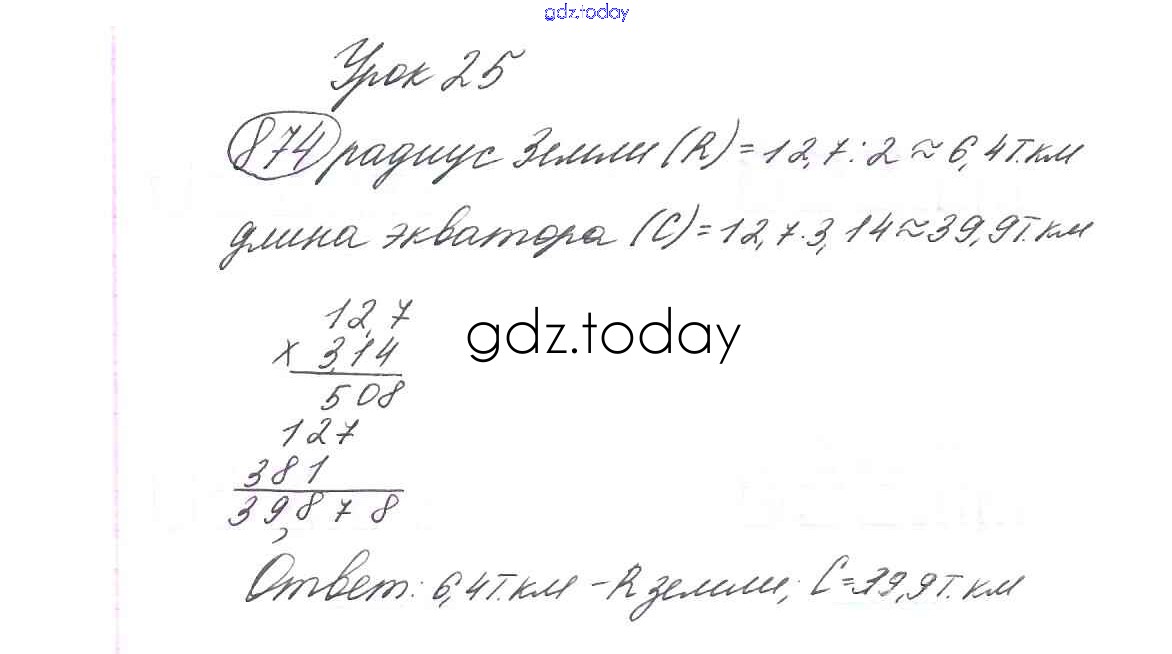 gdz.today
Урок 25
874 радиус Земли (R) = 12,7 : 2 ≈ 6,4 т.км
длина экватора (C) = 12,7 · 3,14 ≈ 39,9 т.км
12,7
gdz.today
× 3,14
508
127
381
39,878
Ответ: 6,4 т.км – R земли; C = 39,9 т.км